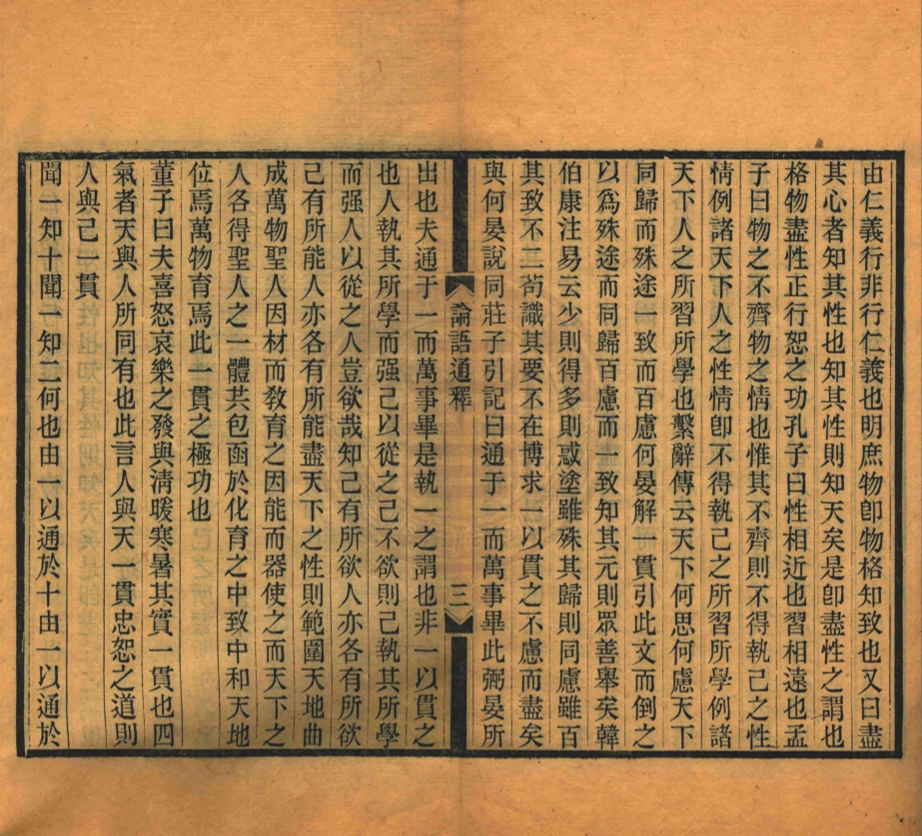 由仁義行非行仁義也明庶物卽物格知致也又曰盡
其心者知其性也知其性則知天矣是卽盡性之謂也
格物盡性正行恕之功孔子曰性相近也習相遠也孟
子曰物之不齊物之情也惟其不齊則不得執己之性
情例諸天下人之性情卽不得執己之所習所學例諸
天下人之所習所學也繫辭傳云天下何思何慮天下
同歸而殊途一致而百慮何晏解一貫引此文而倒之
以爲殊途而同歸百慮而一致知其元則眾善舉矣韓
伯康注易云少則得多則惑塗雖殊其歸則同慮雖百
其致不二苟識其要不在博求一以貫之不慮而盡矣
與何晏說同莊子引記曰通于一而萬事畢此弼晏所
論語通釋
三
出也夫通于一而萬事畢是執一之謂也非一以貫之
也人執其所學而强己以從之己不欲則己執其所學
而强人以從之人豈欲哉知己有所欲人亦各有所欲
己有所能人亦各有所能盡天下之性則範圍天地曲
成萬物聖人因材而敎育之因能而器使之而天下之
人各得聖人之一體共包函於化育之中致中和天地
位焉萬物育焉此一貫之極功也
董子曰夫喜怒哀樂之發與淸暖寒暑其實一貫也四
氣者天與人所同有也此言人與天一貫忠恕之道則
人與己一貫
聞一知十聞一知二何也由一以通於十由一以通於